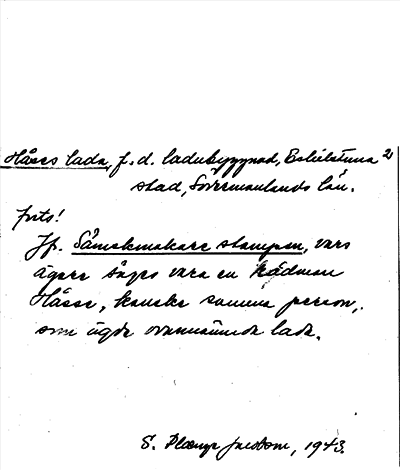 Håses lada, f.d. ladubyggnad, Eskilstuna 2)
stad, Södermanlands län.
forts!
Jfr. Sämskmakare stampen, vars
ägare säges vara en rådman
Håsse, kanske samma person,
som ägde ovannämnda lada.
S. 1943.